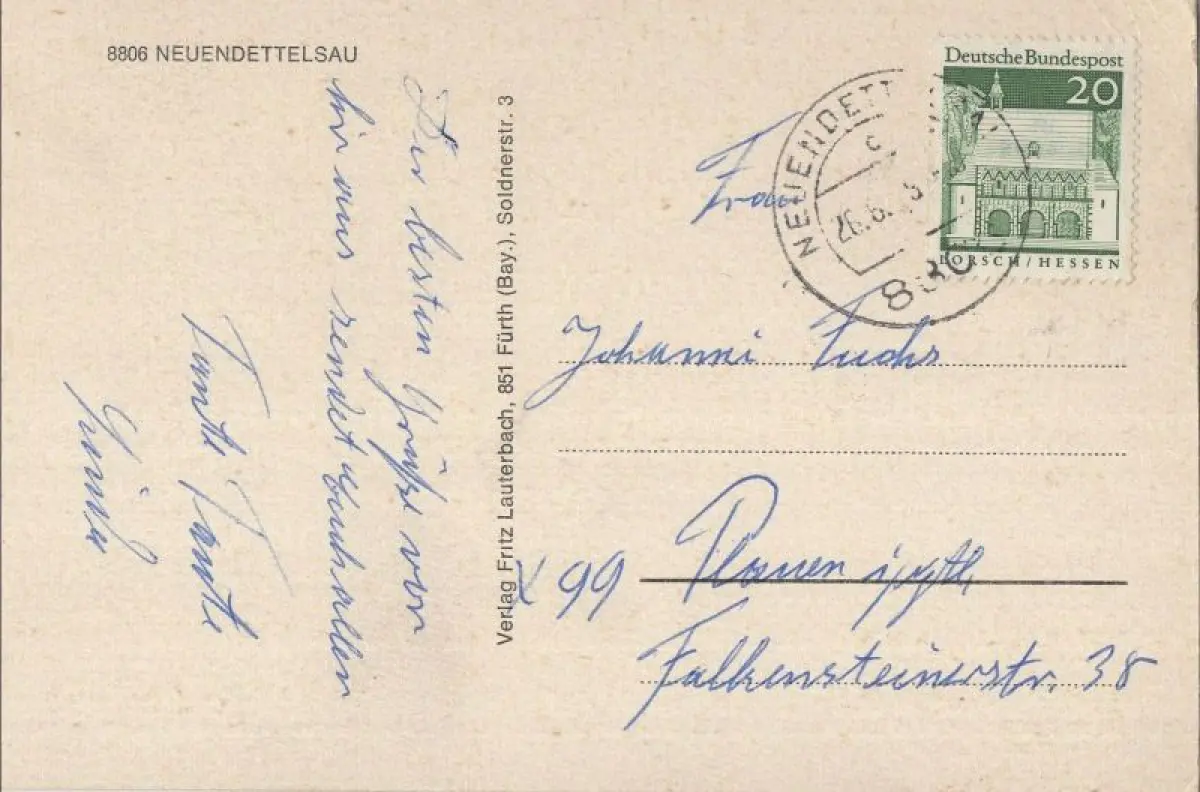 8806 NEUENDETTELSAU
Die besten Grüße von
hir aus sendet Euch allen
Tante Tante
Verlag Fritz Lauterbach, 851 Fürth (Bay.), Soldnerstr. 3
Deutsche Bundespost
20
LORSCH/HESSEN
NEUENDETT
c
26.6.
880
Frau
Johanni Fuchs
X 99 Plauen
Falkensteinerstr. 38